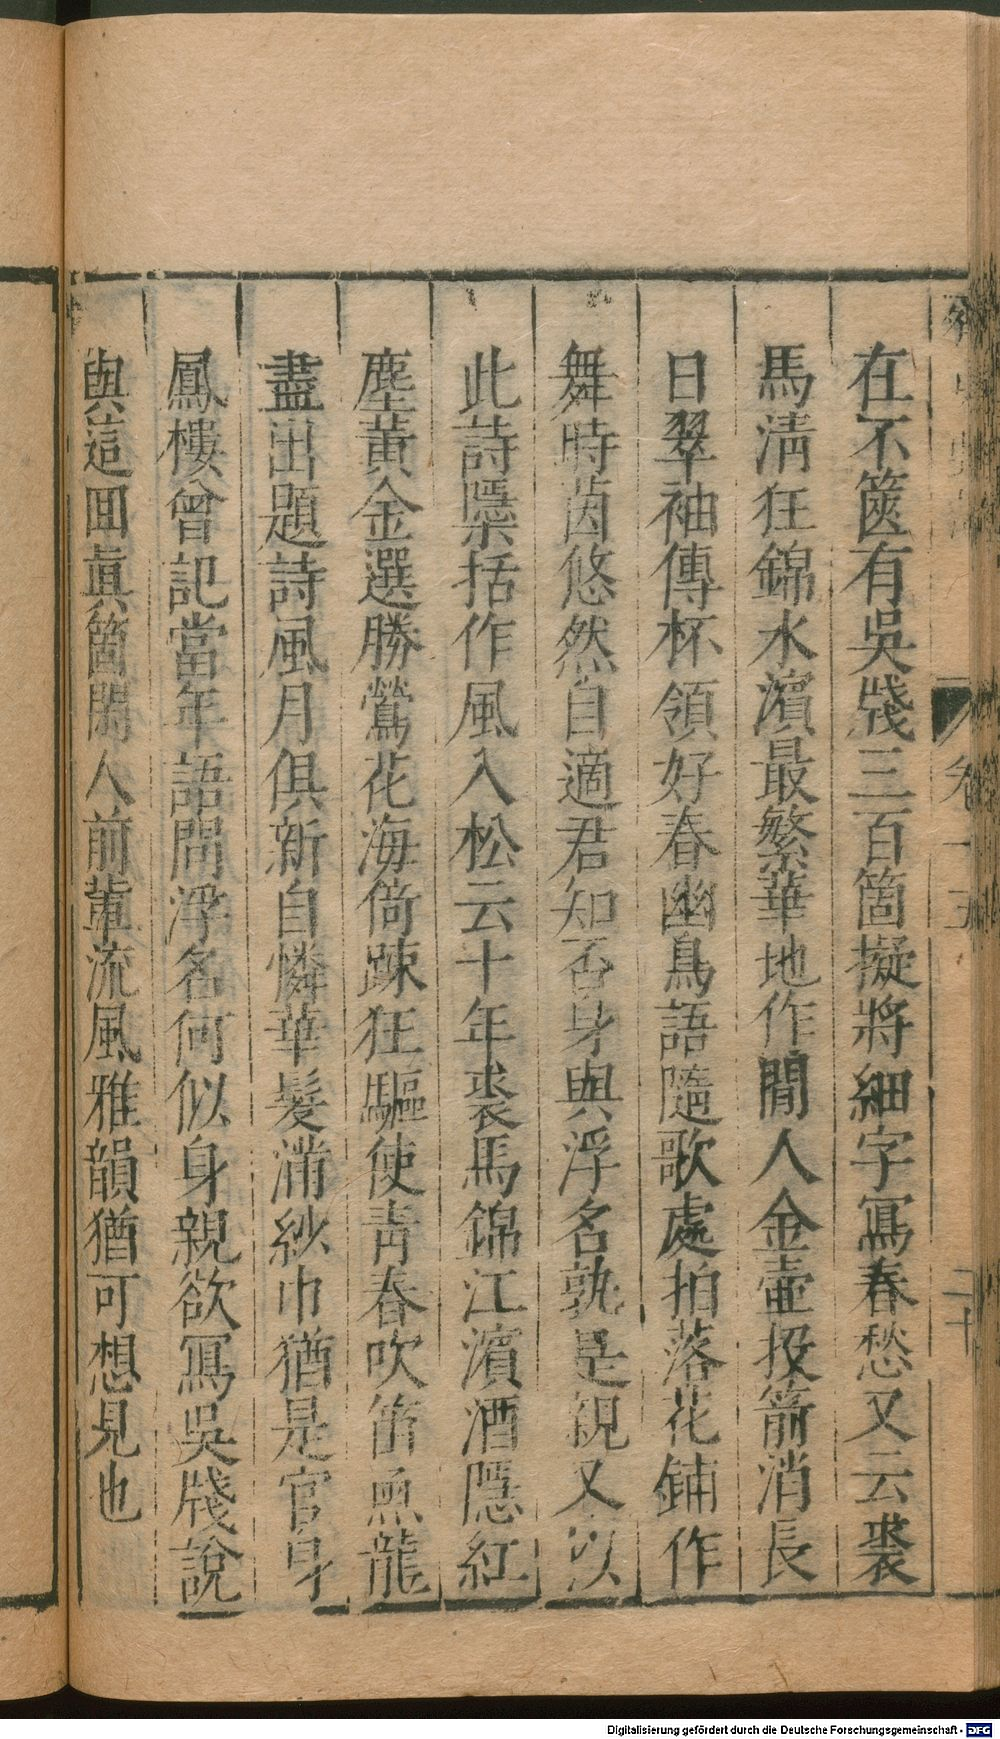 在不篋有吳牋三百箇擬將細字寫春愁又云裘
馬清狂錦水濱最繁華地作閒人金壷投箭消長
日翠袖傳杯領好春幽鳥語隨歌處拍落花鋪作
舞時茵悠然自適君知否身與浮名孰是親又以
此詩檃括作風入松云十年裘馬錦江濱酒隱紅
塵黃金選勝鶯花海倚踈狂驅使青春吹笛魚龍
盡出題詩風月俱新自憐華髮滿紗巾猶是官身
鳳樓曾記當年語問浮名何似身親欲寫吳牋說
與這回真箇閑人前輩流風雅韻猶可想見也
卷一五
二十
Digitalisierung gefördert durch die Deutsche Forschungsgemeinschaft - DFG